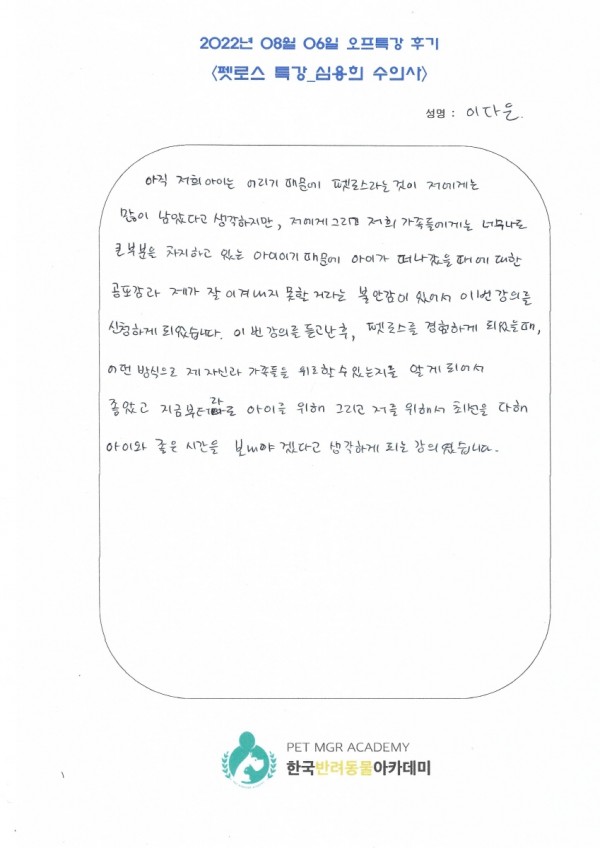 2022년 08월 06일 오프특강 후기
<펫로스 특강_심용희 수의사>
성명 : 이다은
아직 저희 아이는 어리기 때문에 펫로스라는 것이 저에게는
많이 남았다고 생각하지만, 저에게 그리고 저희 가족들에게는 너무나도
큰부분을 차지하고 있는 아이이기 때문에 아이가 떠나갔을 때에 대한
공포감과 제가 잘 이겨내지 못할 거라는 불안감이 있어서 이번 강의를
신청하게 되었습니다. 이 번 강의를 듣고난 후, 펫로스를 경험하게 되었을때,
어떤 방식으로 제 자신과 가족들을 위로할 수 있는지를 알게 되어서
좋았고 지금부터라도 아이를 위해 그리고 저를 위해서 최선을 다해
아이와 좋은 시간을 보내야 겠다고 생각하게 되는 강의였습니다.
PET MGR ACADEMY
한국반려동물아카데미